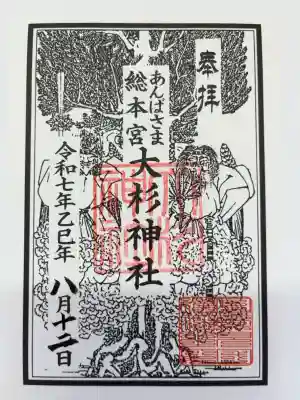 奉拝
あんばさま
総本宮
大杉神社
令和七年乙巳年
八月十二日